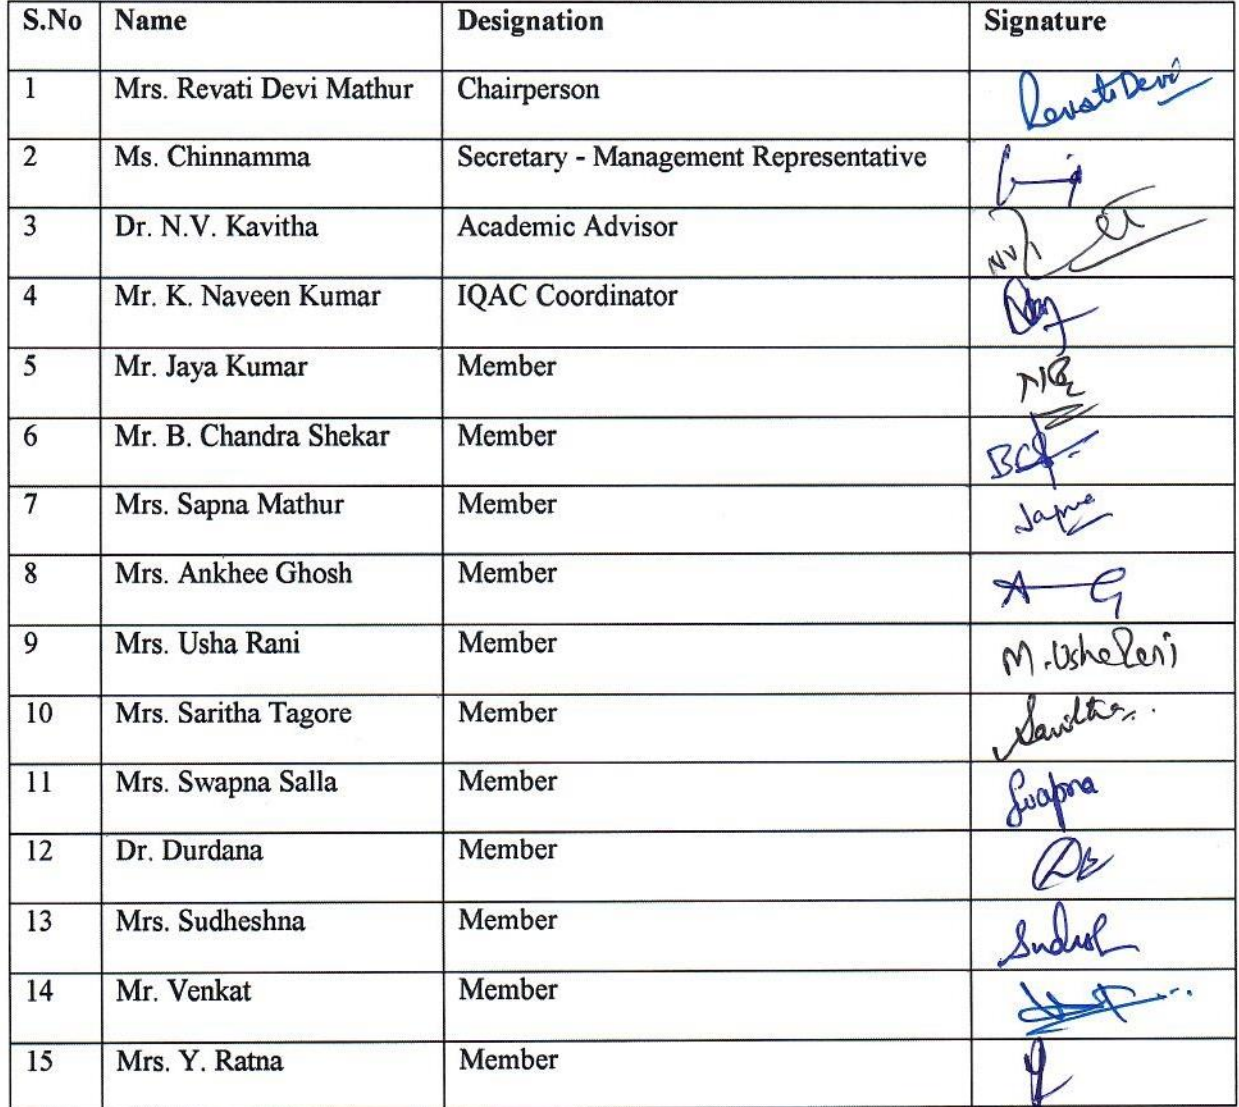 S.No Name Designation Signature
1 Mrs. Revati Devi Mathur Chairperson Revati Devi
2 Ms. Chinnamma Secretary - Management Representative
3 Dr. N.V. Kavitha Academic Advisor
4 Mr. K. Naveen Kumar IQAC Coordinator
5 Mr. Jaya Kumar Member
6 Mr. B. Chandra Shekar Member
7 Mrs. Sapna Mathur Member
8 Mrs. Ankhee Ghosh Member A G
9 Mrs. Usha Rani Member M. Usha Rani
10 Mrs. Saritha Tagore Member
11 Mrs. Swapna Salla Member Swapna
12 Dr. Durdana Member
13 Mrs. Sudheshna Member
14 Mr. Venkat Member
15 Mrs. Y. Ratna Member